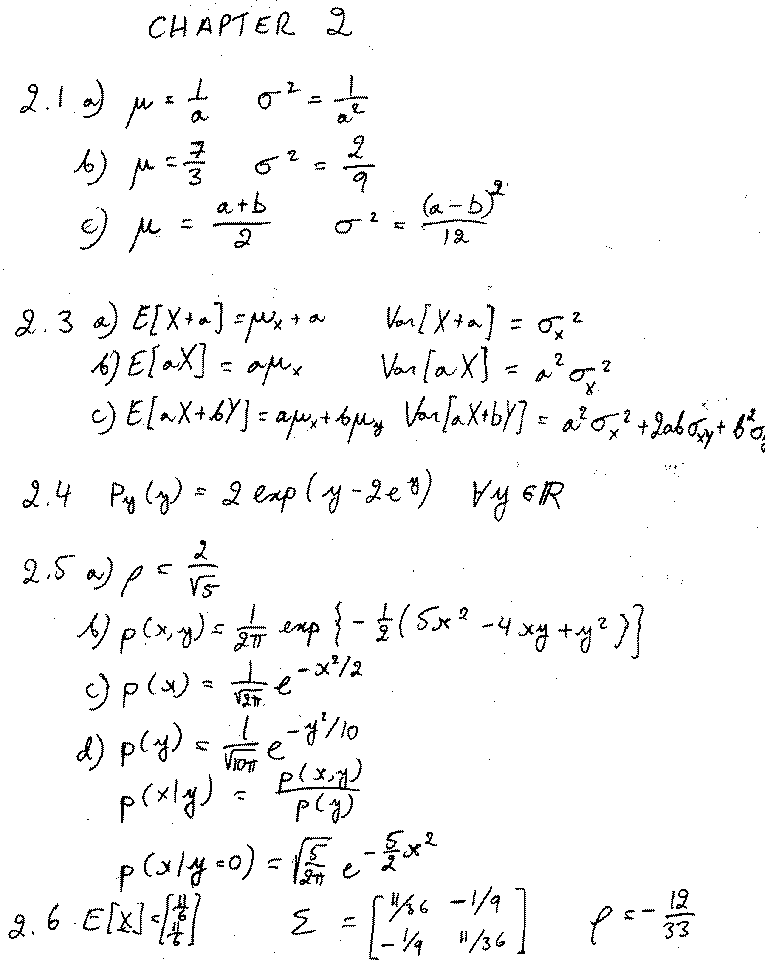 CHAPTER 2
2.1 a) μ = 1/a σ² = 1/a²
b) μ = 7/3 σ² = 2/9
c) μ = (a+b)/2 σ² = (a-b)²/12
2.3 a) E[X+a] = μₓ + a Var[X+a] = σₓ²
b) E[aX] = aμₓ Var[aX] = a²σₓ²
c) E[aX+bY] = aμₓ + bμ_y Var[aX+bY] = a²σₓ² + 2abσ_xy + b²σ_y
2.4 P_y(y) = 2 exp(y - 2e^y) ∀y ∈ ℝ
2.5 a) ρ = 2/√5
b) p(x,y) = 1/2π exp{-1/2(5x² - 4xy + y²)}
c) p(x) = 1/√2π e^(-x²/2)
d) p(y) = 1/√10π e^(-y²/10)
p(x|y) = p(x,y)/p(y)
p(x|y=0) = √(5/2π) e^(-5/2 x²)
2.6 E[X] = [11/6 11/6] Σ = [11/36 -1/9 -1/9 11/36] ρ = -12/33